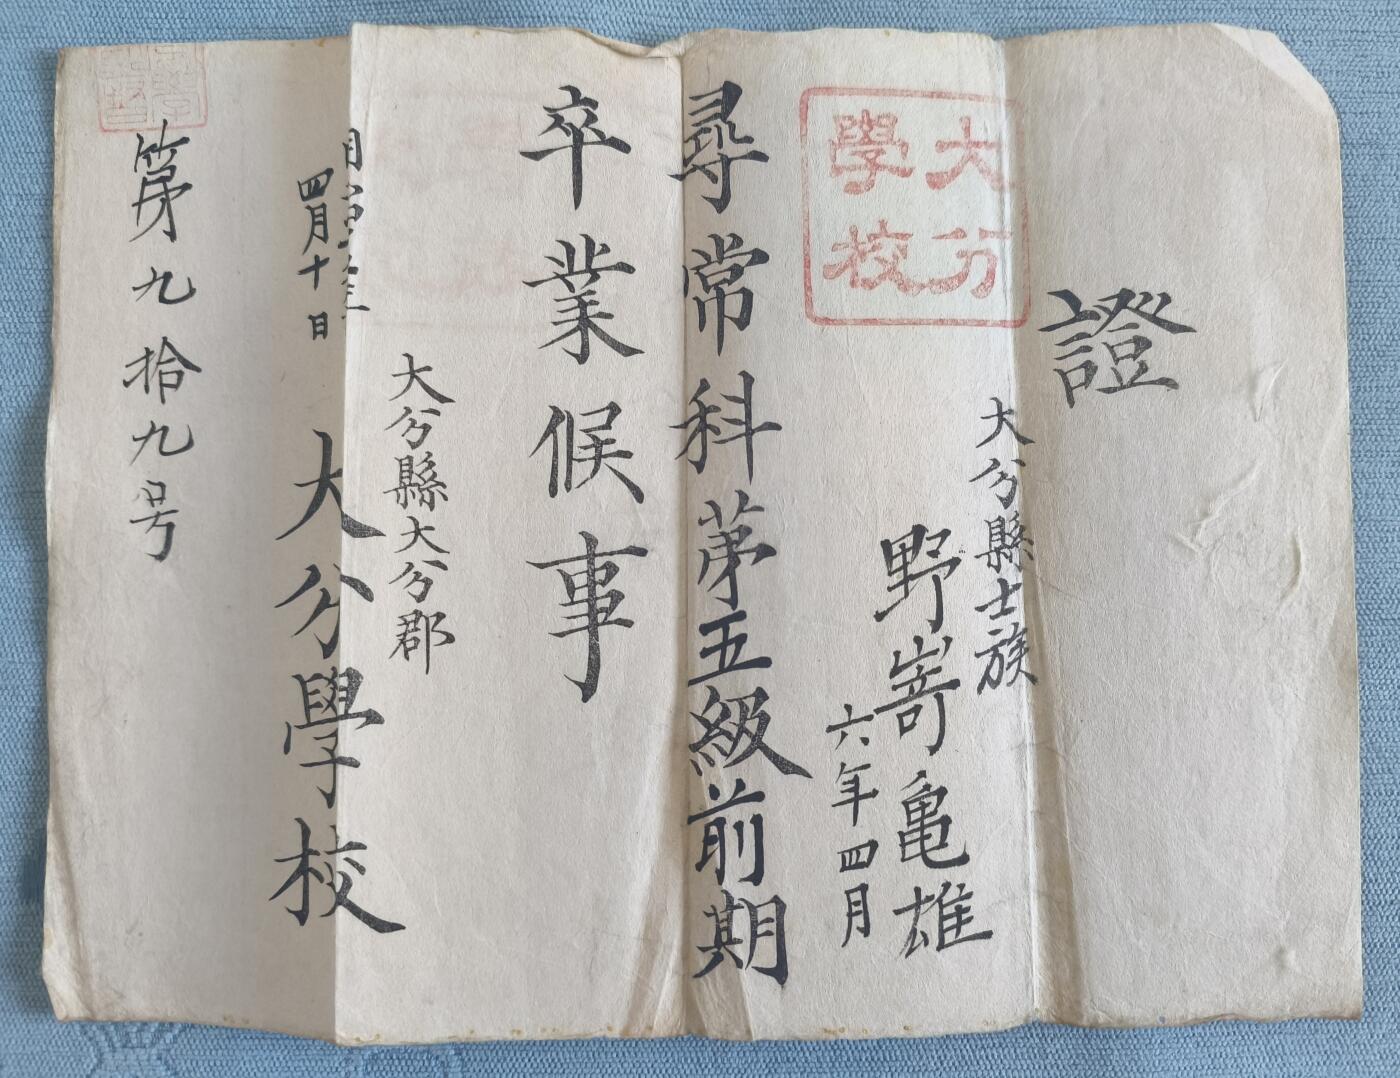 證
大分縣士族
野嵜亀雄
六年四月
大分
學校
尋常科第五級前期
卒業候事
大分縣大分郡
大分學校
四月十日
第九拾九号